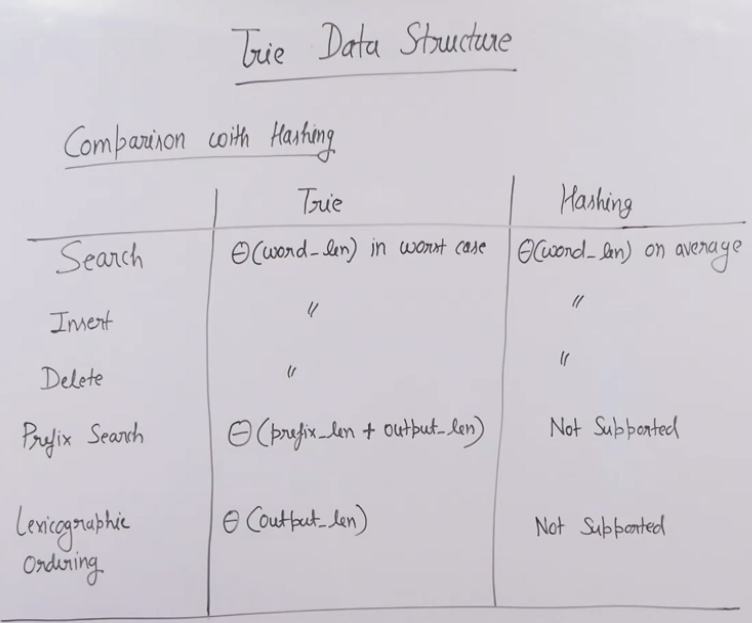 Trie Data Structure
Comparison with Hashing
Trie Hashing
Search Θ(word_len) in worst case Θ(word_len) on average
Insert 〃 〃
Delete 〃 〃
Prefix Search Θ(prefix_len + output_len) Not Supported
Lexicographic Θ(output_len) Not Supported
Ordering